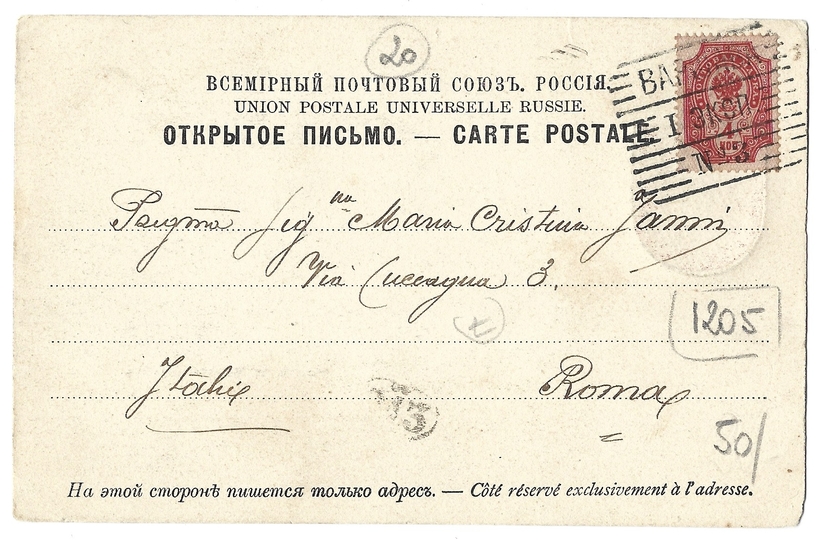 20
ВСЕМІРНЫЙ ПОЧТОВЫЙ СОЮЗЪ. РОССІЯ.
UNION POSTALE UNIVERSELLE RUSSIE.
ОТКРЫТОЕ ПИСЬМО. — CARTE POSTALE.
I
4
КОП
N 3
Signa Maria Cristina Janni
Via Cuccagna 3.
1205
Italie Roma
50/
На этой сторонѣ пишется только адресъ. — Côté réservé exclusivement à l'adresse.